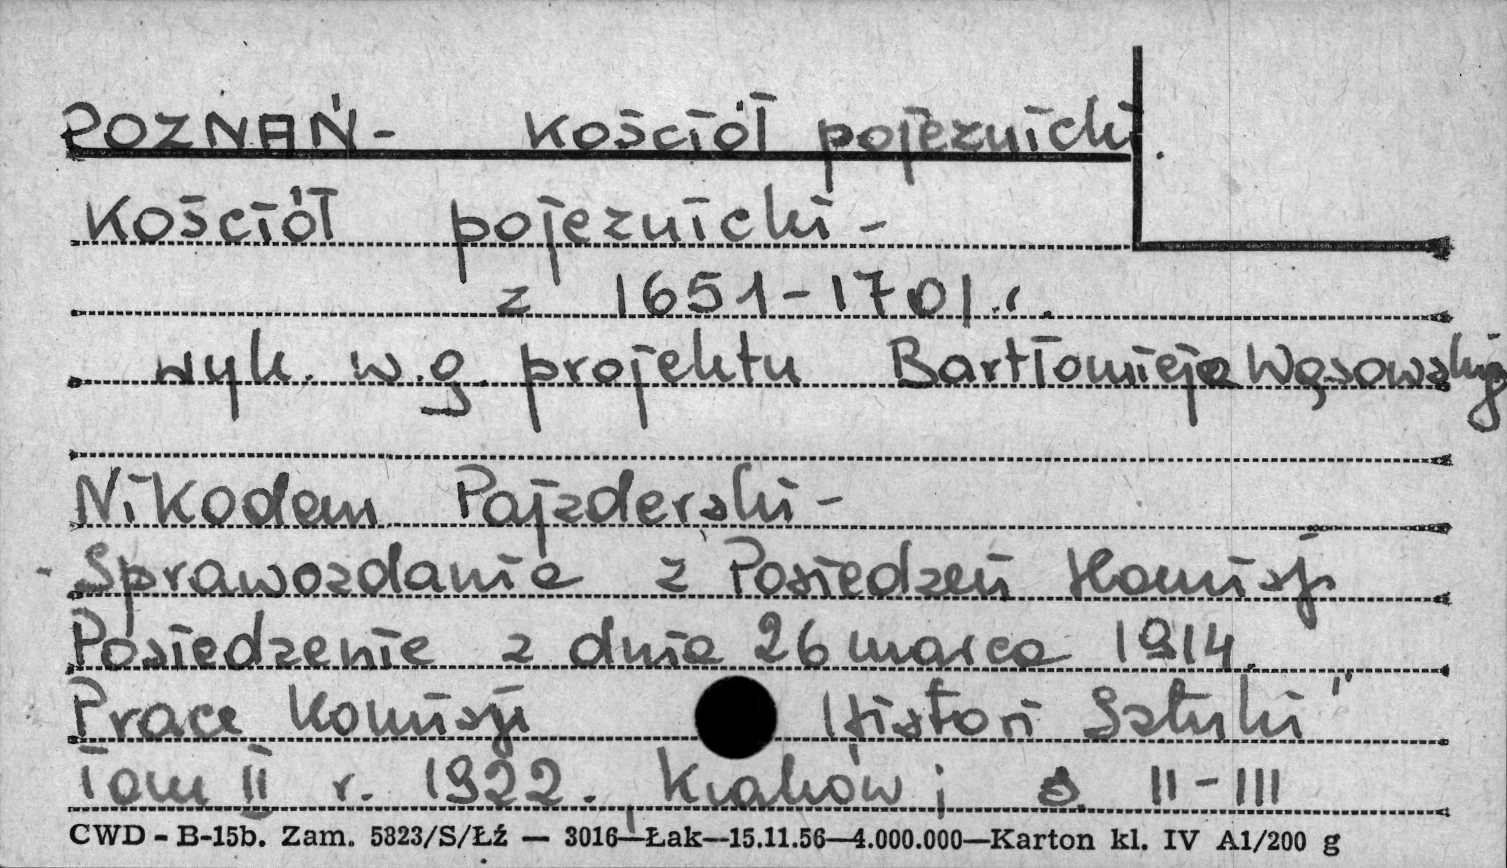 POZNAŃ - Kościół pojezuicki.
Kościół pojezuicki -
z 1651-1701 r.
wyk. w.g. projektu Bartłomieja Wąsowskieg
Nikodem Pajzderski -
- Sprawozdanie z Posiedzeń Komisji
Posiedzenie z dnia 26 marca 1914.
Prace Komisji Histori Sztuki"
Tom II r. 1922. Kraków; s. II-III
CWD - B-15b. Zam. 5823/S/Łź — 3016—Łak—15.11.56—4.000.000—Karton kl. IV A1/200 g